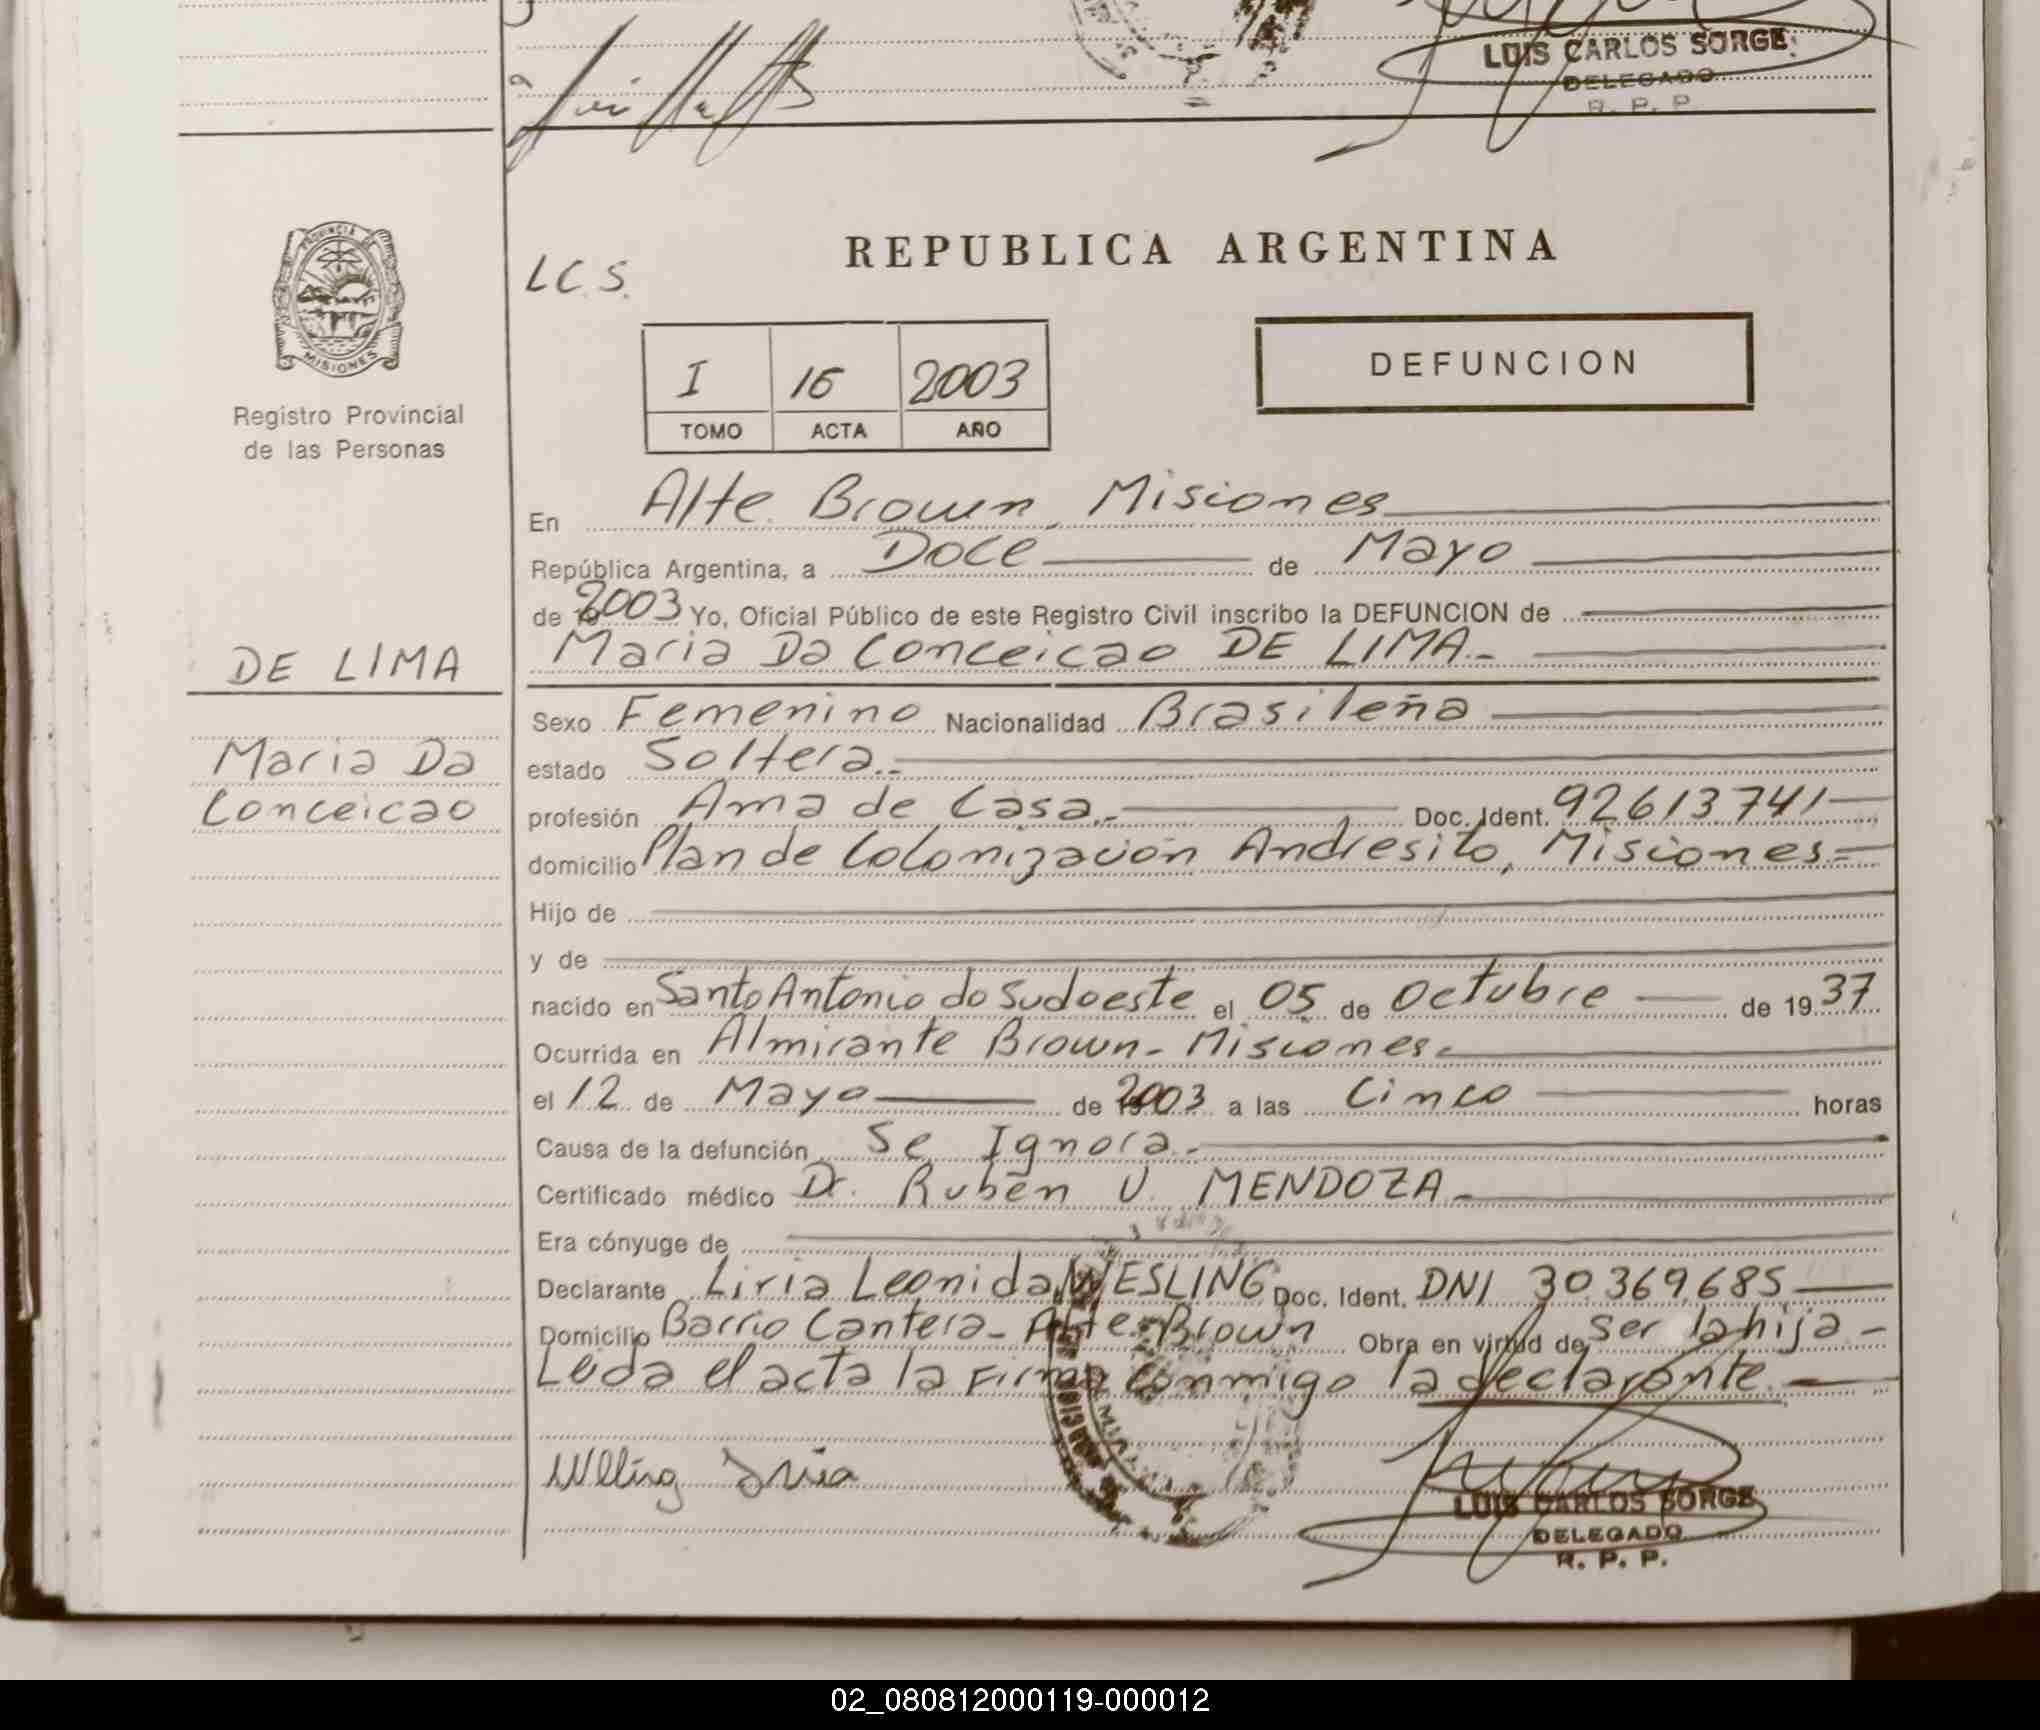 LUIS CARLOS SORGE
DELEGADO
R. P. P
PROVINCIA DE
MISIONES
Registro Provincial
de las Personas
L.C.S.
REPUBLICA ARGENTINA
I 16 2003
TOMO ACTA AÑO
DEFUNCION
En Alte. Brown, Misiones
República Argentina, a Doce de Mayo
de 2003 Yo, Oficial Público de este Registro Civil inscribo la DEFUNCION de
DE LIMA
Maria Da Conceicao DE LIMA.-
Sexo Femenino Nacionalidad Brasileña
Maria Da
Conceicao
estado Soltera.-
profesión Ama de Casa.- Doc. Ident. 92613741
domicilio Plan de Colonización Andresito, Misiones-
Hijo de
y de
nacido en Santo Antonio do Sudoeste el 05 de Octubre de 1937
Ocurrida en Almirante Brown- Misiones-
el 12 de Mayo de 2003 a las Cinco horas
Causa de la defunción Se Ignora.-
Certificado médico Dr. Rubén U. MENDOZA-
Era cónyuge de
Declarante Liria Leonida WESLING Doc. Ident. DNI 30.369.685
Domicilio Barrio Cantera- Alte. Brown Obra en virtud de ser la hija.-
Leida el acta la firma conmigo la declarante.-
LUIS CARLOS SORGE
DELEGADO
R. P. P.
02_080812000119-000012